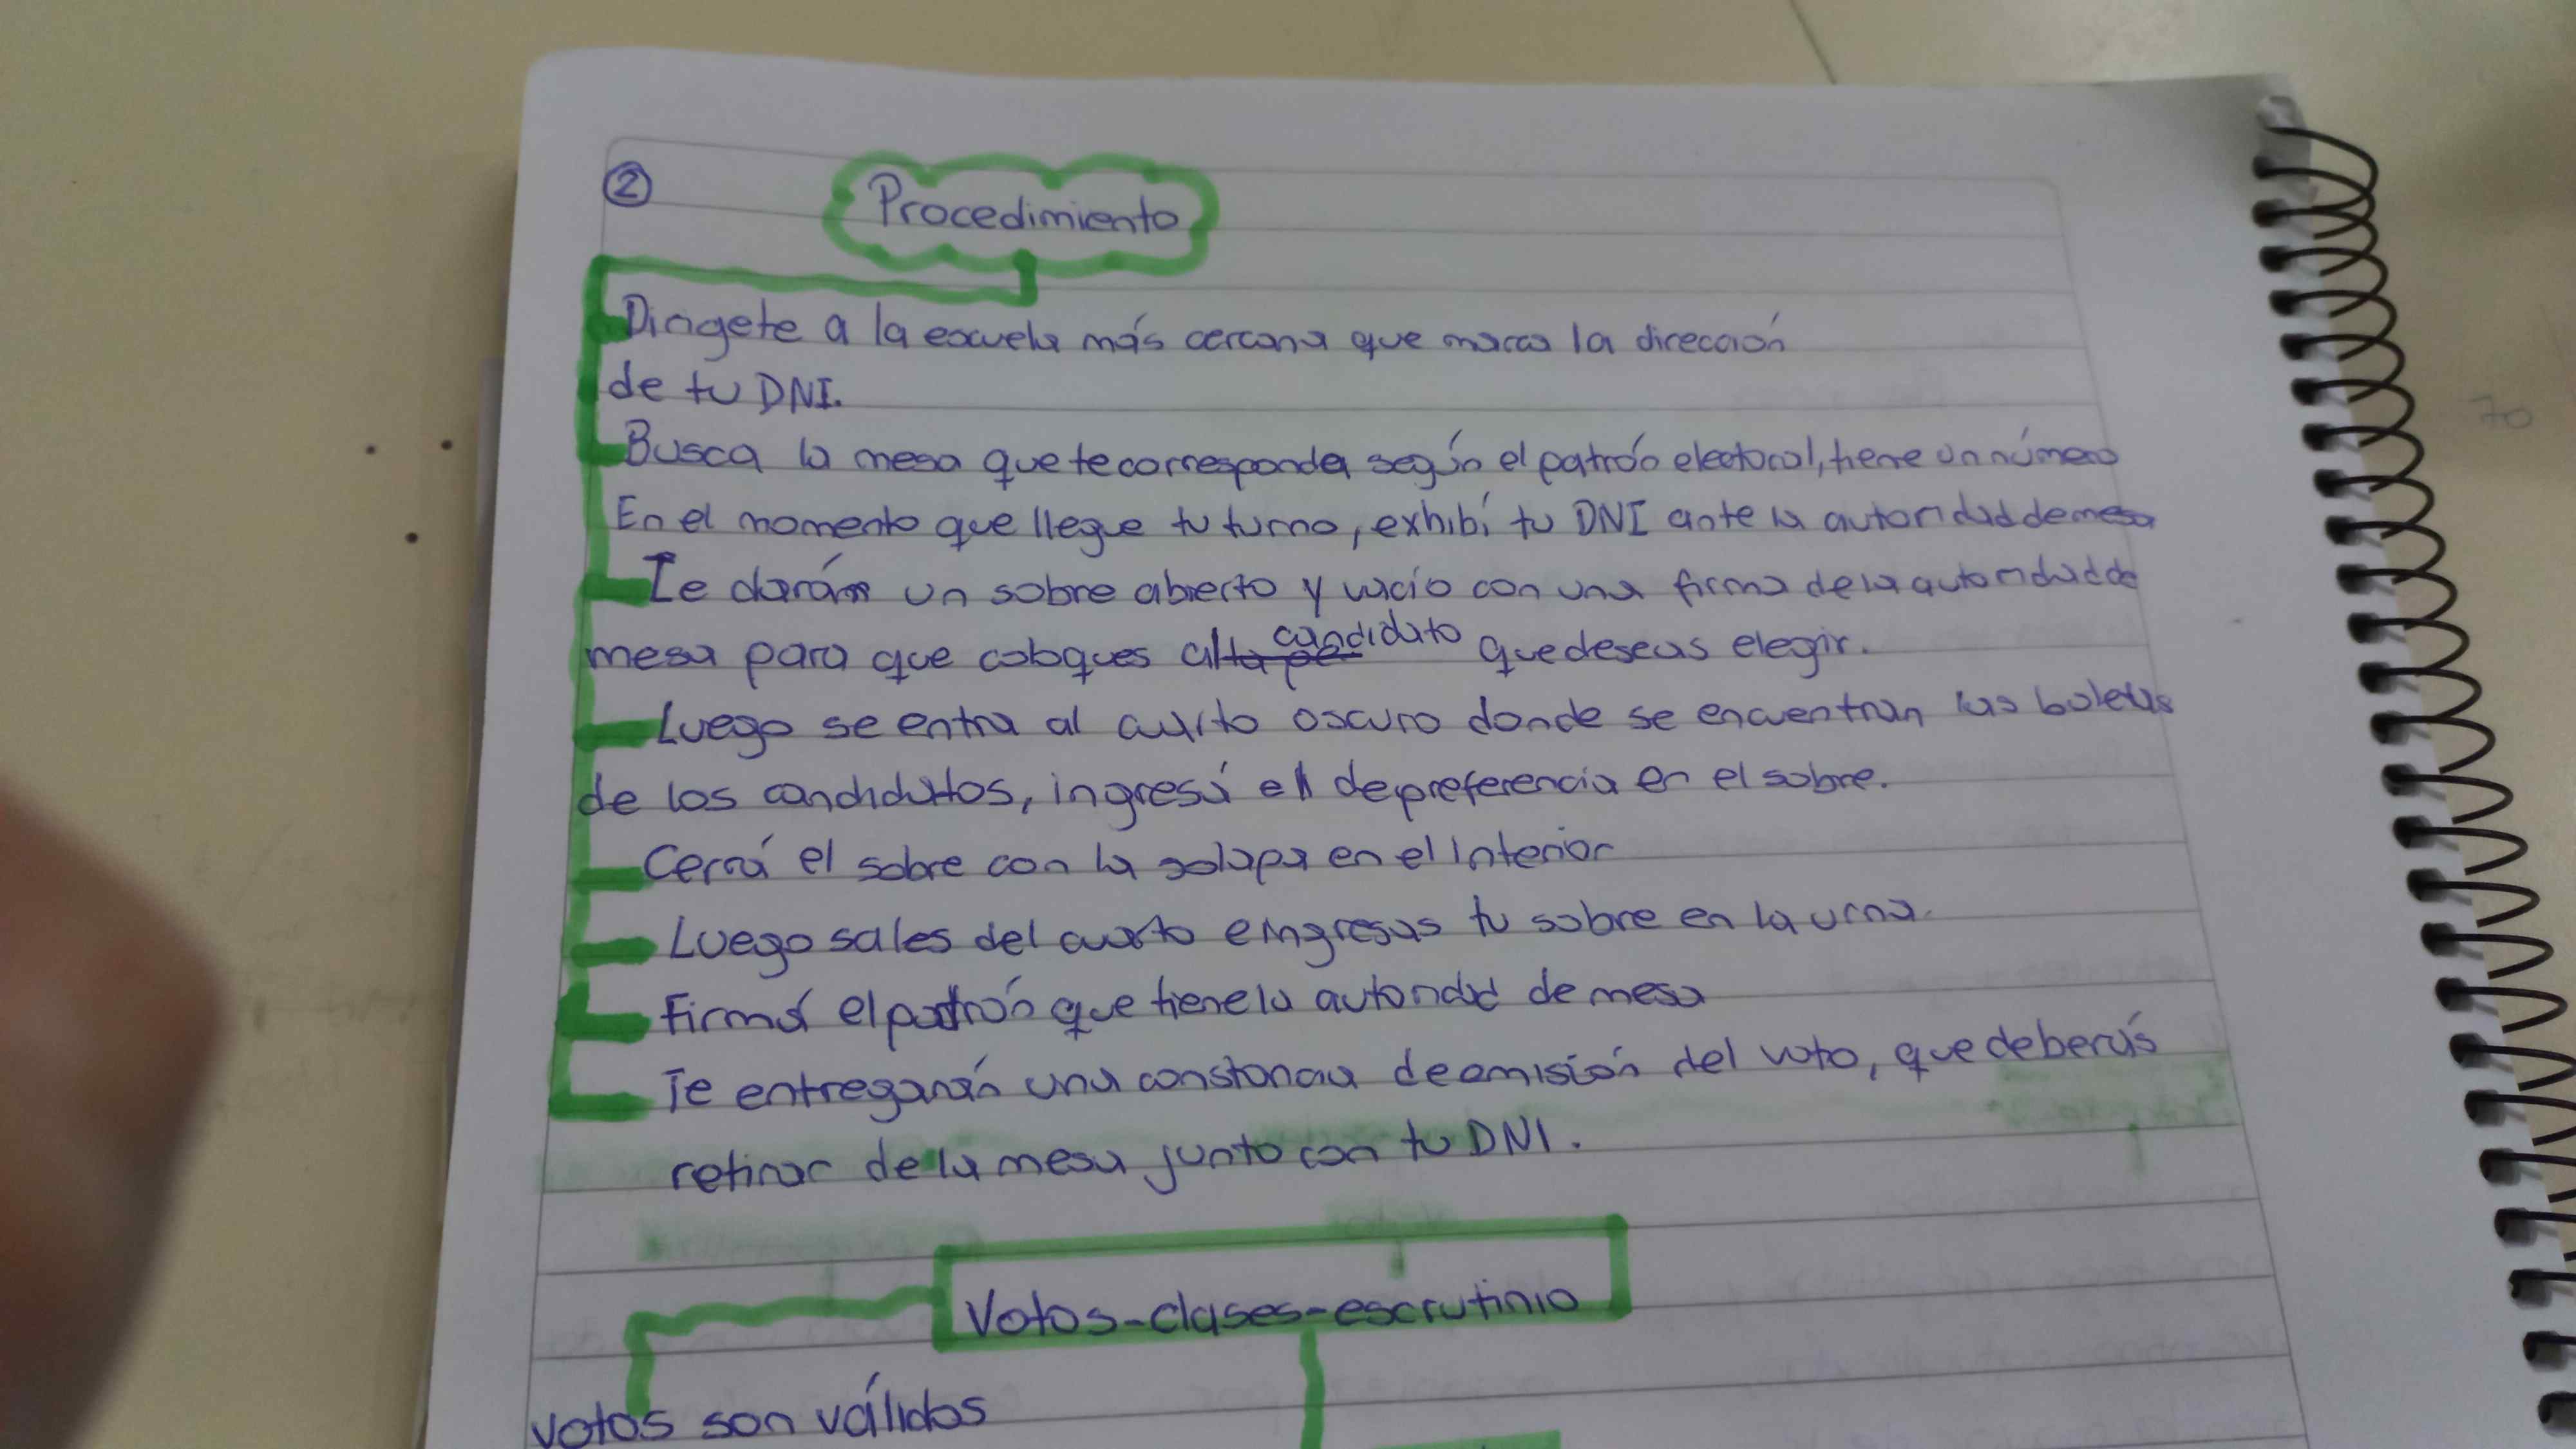 ②
Procedimiento
Dirigete a la escuela más cercana que marca la dirección
de tu DNI.
Busca la mesa que te corresponda según el patrón electoral, tiene un número
En el momento que llegue tu turno, exhibí tu DNI ante la autoridad de mesa
Te darán un sobre abierto y vacío con una firma de la autoridad de
mesa para que coloques al candidato que deseas elegir.
Luego se entra al cuarto oscuro donde se encuentran las boletas
de los candidatos, ingresá el de preferencia en el sobre.
Cerrá el sobre con la solapa en el interior
Luego sales del cuarto e ingresas tu sobre en la urna.
Firmá el patrón que tiene la autoridad de mesa
Te entregarán una constancia de emisión del voto, que deberás
retirar de la mesa junto con tu DNI.
Votos-clases-escrutinio
votos son válidos
70